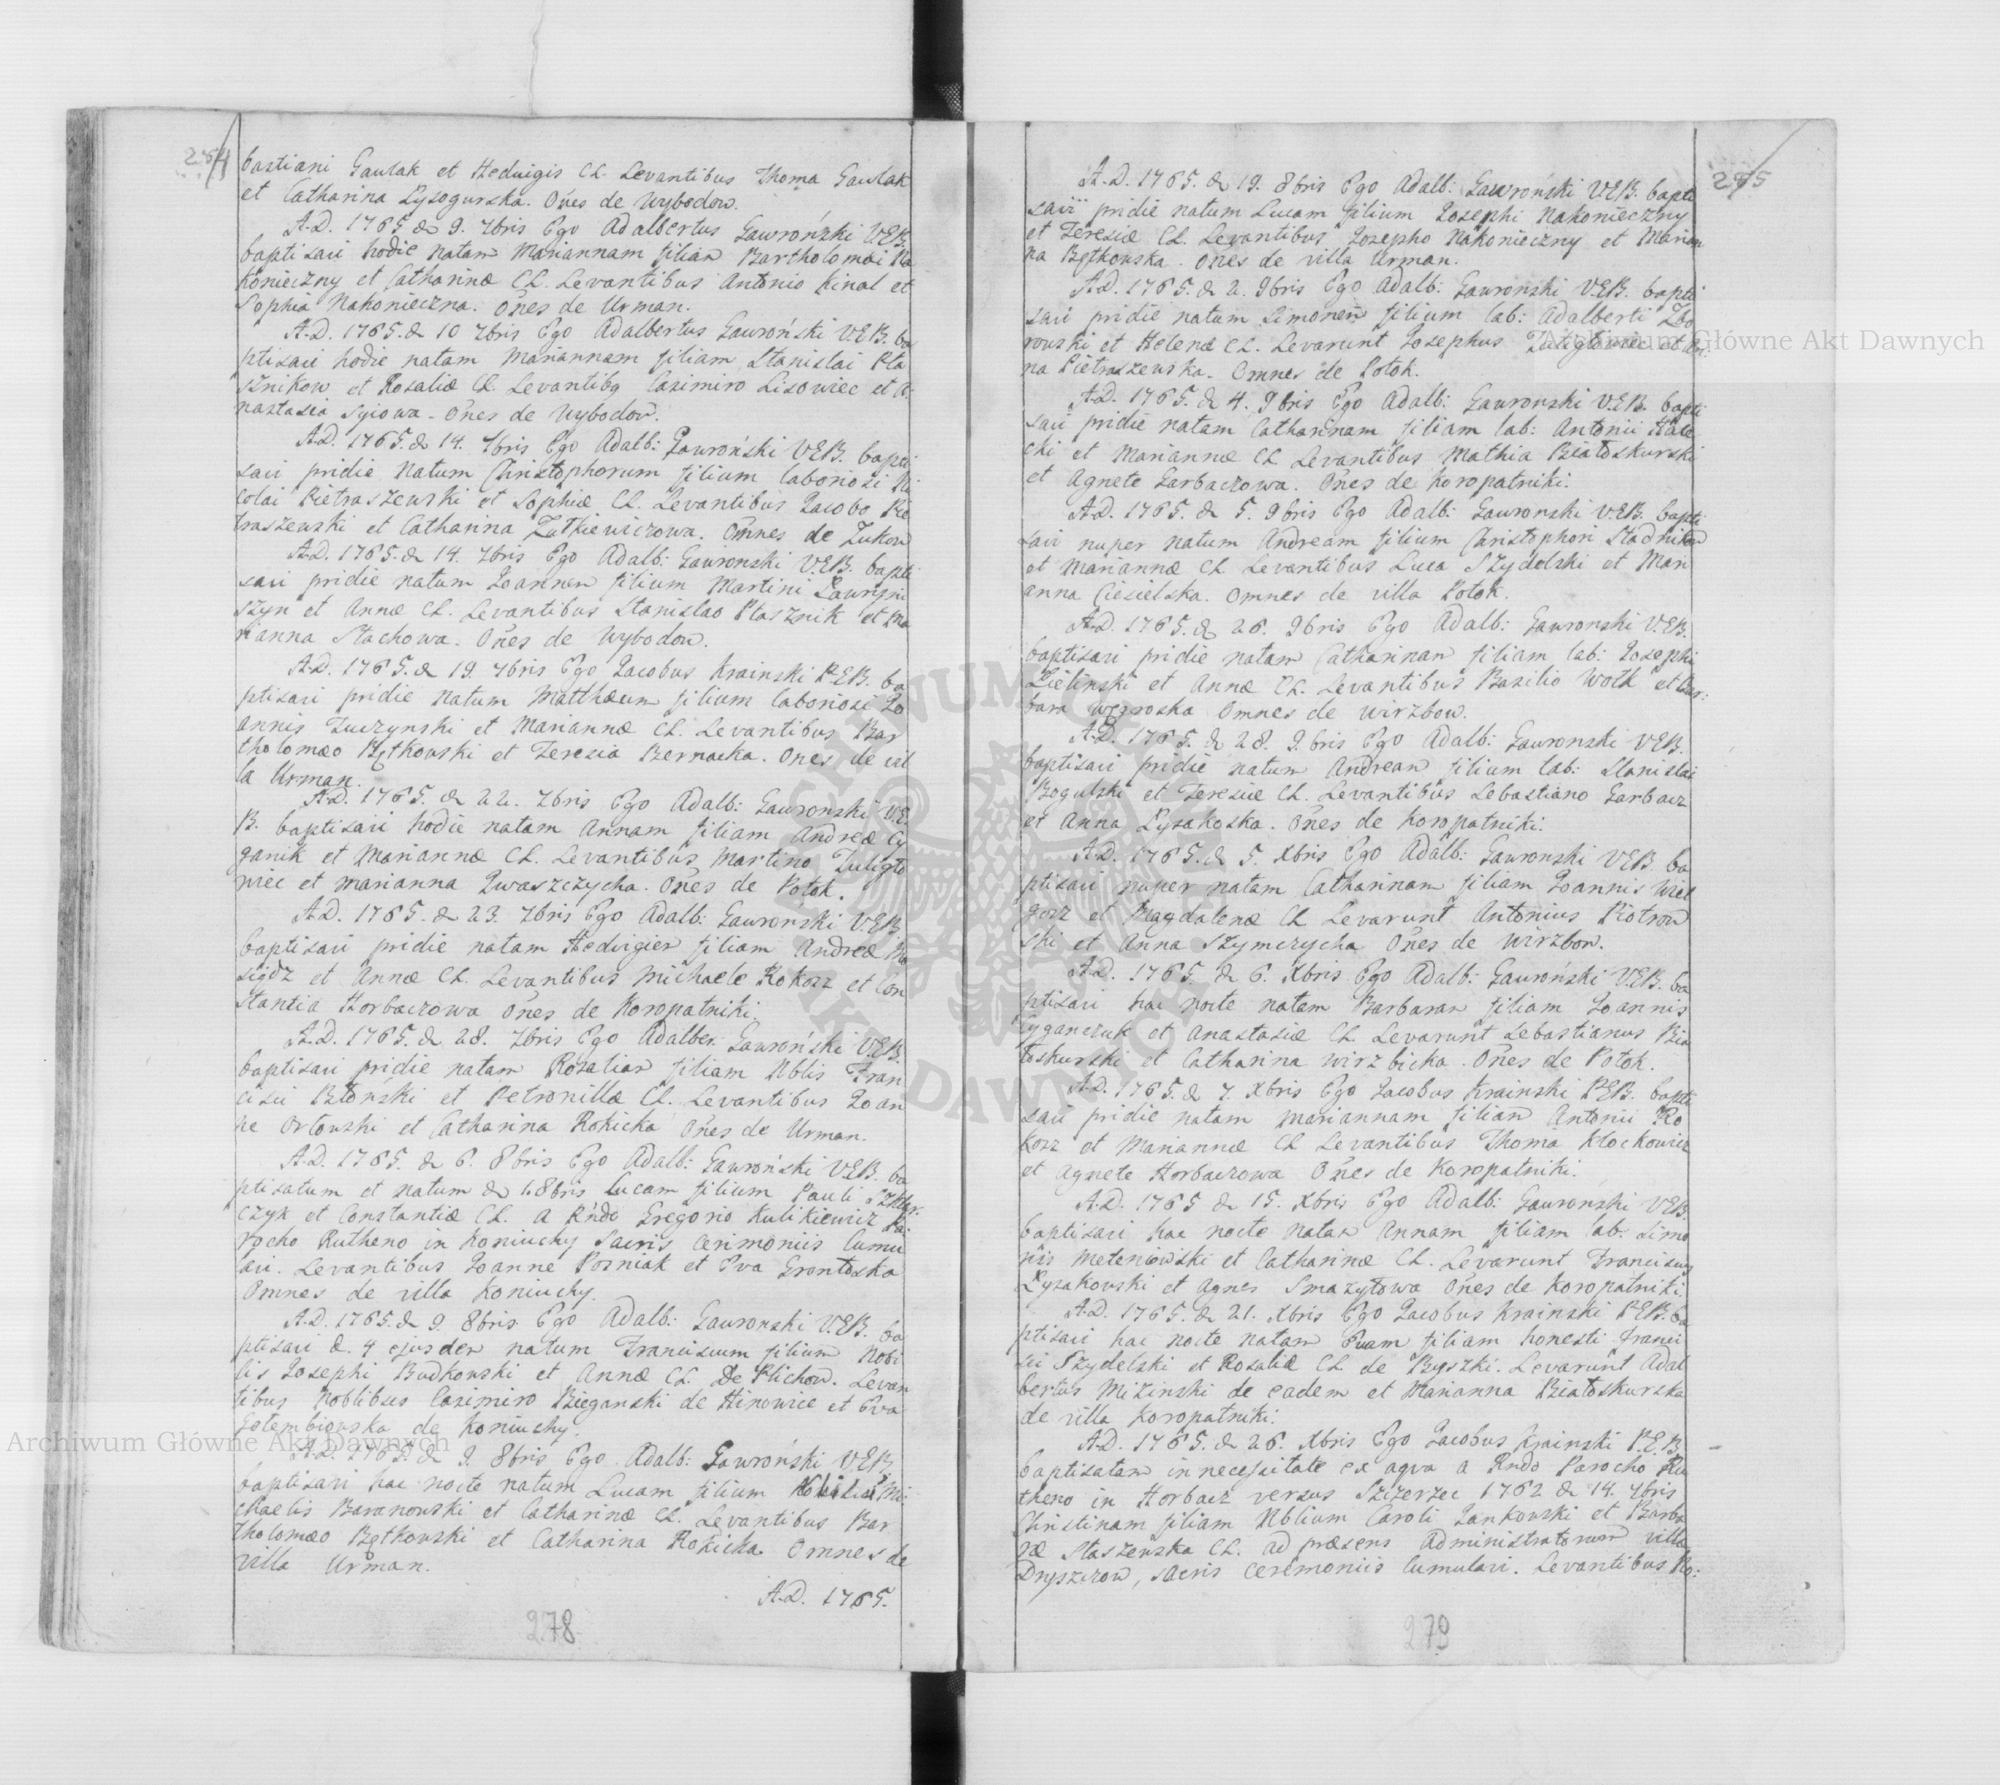 254
bastiani Gawlak et Hedvigis CL. Levantibus Thoma Gawlak
et Catharina Lysogurska. Oñes de Wybodow.
A.D. 1765 d. 9. 7bris Ego Adalbertus Gawroński V.E.B.
baptisavi hodie natam Mariannam filiam Bartholomæi Na
konieczny et Catharinæ CL. Levantibus Antonio Kinal et
Sophia Nakonieczna. Oñes de Urman.
A.D. 1765. d. 10 7bris Ego Adalbertus Gawroński V.E.B. ba
ptisavi hodie natam Mariannam filiam Stanislai Pta
sznikow et Rosaliæ CL. Levantibg Casimiro Lisowiec et A
nastasia Syiowa. Oñes de Wybodow.
A.D. 1765. d. 14. 7bris Ego Adalb: Gawroński V.E.B. bapti
savi pridie natum Christophorum filium laboriosi Ni
colai Pietraszewski et Sophiæ CL. Levantibus Jacobo Pie
traszewski et Catharina Zutkiewiczowa. Omnes de Zukow
A.D. 1765. d. 14. 7bris Ego Adalb: Gawronski V.E.B. bapti
savi pridie natum Joannem filium Martini
szyn et Annæ CL. Levantibus Stanislao Ptasznik et Ma
rianna Stachowa. Oñes de Wybodow.
A.D. 1765. d. 19. 7bris Ego Jacobus Krainski P.E.B. ba
ptisavi pridie natum Matthæum filium laboriosi Jo
annis Juczynski et Mariannæ CL. Levantibus Bar
tholomæo Bętkowski et Teresia Bernacka. Ones de vil
la Urman.
A.D. 1765. d. 22. 7bris Ego Adalb: Gawronski V.E.
B. baptisavi hodie natam Annam filiam Andreæ Cy
ganik et Mariannæ CL. Levantibus Martino Zuligło
wiec et Marianna Iwaszczycha. Oñes de Potok.
A.D. 1765. d. 23. 7bris Ego Adalb: Gawronski V.E.B.
baptisavi pridie natam Hedvigiem filiam Andreæ
et Annæ CL. Levantibus Michaele Kokosz et Con
stantia Horbaczowa Oñes de Koropatniki.
A.D. 1765. d. 28. 7bris Ego Adalber: Gawroński V.E.B.
baptisavi pridie natam Rosaliam filiam Nblis Fran
cisci Błoński et Petronillæ CL. Levantibus Joan
ne Orłowski et Catharina Rokicka Oñes de Urman.
A.D. 1765. d. 6. 8bris Ego Adalb: Gawroński V.E.B. ba
ptisatum et natum d. 1. 8bris Lucam filium Pauli
czyk et Constantiæ CL. a Rndo Gregorio Kulikiewicz Pa
rocho Rutheno in Koniuchy Sacris cerimoniis Cumu
lavi. Levantibus Joanne Pozniak et Eva
Omnes de villa Koniuchy.
A.D. 1765. d. 9. 8bris Ego Adalb: Gawronski V.E.B. ba
ptisavi d. 4 ejusdem natum Franciscum filium Nobi
lis Josephi Budkowski et Annæ CL. De Plichow. Levan
tibus Noblibus Casimiro Bieganski de Hinowice et Eva
Gołembiowska de Koniuchy.
A.D. 1765. d. 9. 8bris Ego Adalb: Gawroński V.E.B.
baptisavi hac nocte natum Lucam filium Nobilis Mi
chaelis Baranowski et Catharinæ CL. Levantibus Bar
tholomæo Bętkowski et Catharina Rokicka Omnes de
villa Urman.
A.D. 1765.
278
255
A.D. 1765. d. 19. 8bris Ego Adalb: Gawroński V.E.B. bapti
savi pridie natum Lucam filium Josephi Nakonieczny
et Teresiæ CL. Levantibus Josepho Nakonieczny et Marian
na Bętkowska. Oñes de villa Urman.
A.D. 1765. d. 2. 9bris Ego Adalb: Gawroński V.E.B. bapti
savi pridie natum Simonem filium lab: Adalberti Zbo
rowski et Helenæ CL. Levarunt Josephus Zuligłowiec et An
na Pietraszewska. Omnes de Potok.
A.D. 1765. d. 4. 9bris Ego Adalb: Gawronski V.E.B. bapti
savi pridie natam Catharinam filiam lab: Antonii
cki et Mariannæ CL Levantibus Mathia Białoskurski
et Agnete Garbaczowa. Oñes de Koropatniki.
A.D. 1765. d. 5. 9bris Ego Adalb: Gawronski V.E.B. bapti
savi nuper natum Andream filium Christophori Stadnikow
et Mariannæ CL. Levantibus Luca Szydelski et Mari
anna Ciesielska. Omnes de villa Potok.
A.D. 1765. d. 26. 9bris Ego Adalb: Gawronski V.E.B.
baptisavi pridie natam Catharinam filiam lab: Josephi
Zielinski et Annæ CL. Levantibus Basilio Wołk et Bar:
bara Węgroska Omnes de Wirzbow.
A.D. 1765. d. 28. 9.bris Ego Adalb: Gawronski V.E.B.
baptisavi pridie natum Andream filium lab: Stanislai
Bogulski et Teresiæ CL. Levantibus Sebastiano Garbacz
et Anna Lysakoska. Oñes de Koropatniki.
A.D. 1765. d. 5. Xbris Ego Adalb: Gawronski V.E.B. ba
ptisavi nuper natam Catharinam filiam Joannis Wiel
gosz et Magdalenæ CL Levarunt Antonius Piotrow
ski et Anna Szymczycha Oñes de Wirzbow.
A.D. 1765. d. 6. Xbris Ego Adalb: Gawroński V.E.B. ba
ptisavi hac nocte natam Barbaram filiam Joannis
Cyganczuk et Anastasiæ CL Levarunt Sebastianus Bia
łoskurski et Catharina Wirzbicka. Oñes de Potok.
A.D. 1765. d. 7. Xbris Ego Jacobus Krainski P.E.B. bapti
savi pridie natam Mariannam filiam Antonii Ko
kosz et Mariannæ CL Levantibus Thoma Kłockowicz
et Agnete Horbaczowa Oñes de Koropatniki.
A.D. 1765 d. 15. Xbris Ego Adalb: Gawronski V.E.B.
baptisavi hac nocte natam Annam filiam lab. Simo
nis Meteniowski et Catharinæ CL. Levarunt Franciscus
Lysakowski et Agnes Smażytowa Oñes de Koropatniki.
A.D. 1765. d. 21. Xbris Ego Jacobus Krainski P.E.B. ba
ptisavi hac nocte natam Evam filiam honesti Franci
sci Szydelski et Rosaliæ CL de Byszki. Levarunt Adal
bertus Mizinski de eadem et Marianna Białoskurska
de villa Koropatniki.
A.D. 1765. d. 26. Xbris Ego Jacobus Krainski P.E.B.
baptisatam in necessitate ex aqva a Rndo Parocho Ru
theno in Horbacz versus Szczerzec 1762 d. 14. 7bris
Christinam filiam Nblium Caroli Jankowski et Barba
ræ Staszewska CL. ad præsens Administratorum villæ
Dryszczow, sacris ceremoniis Cumulavi. Levantibus No:
279
Archiwum Główne Akt Dawnych
Archiwum Główne Akt Dawnych
ARCHIWUM GŁÓWNE AKT DAWNYCH